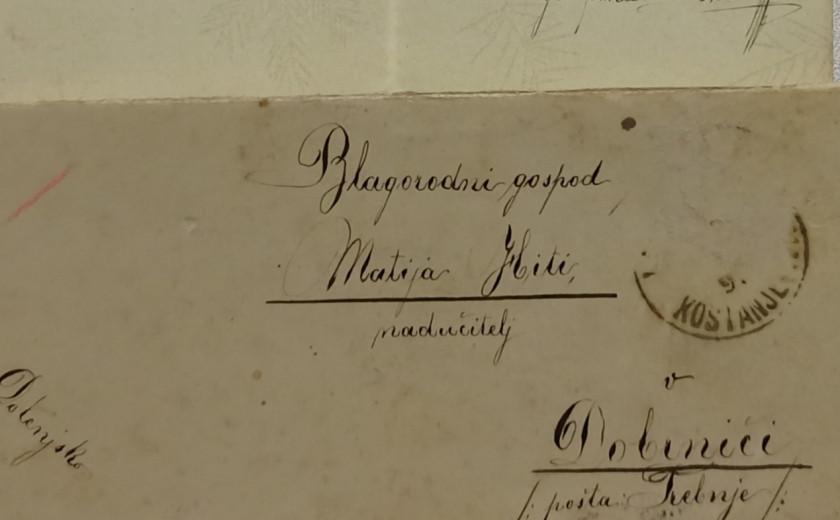 Blagorodni gospod
Matija Hiti,
nadučitelj
9.
KOSTANJE
v
Dobrniči
/: pošta: Trebnje :/
Dolenjsko